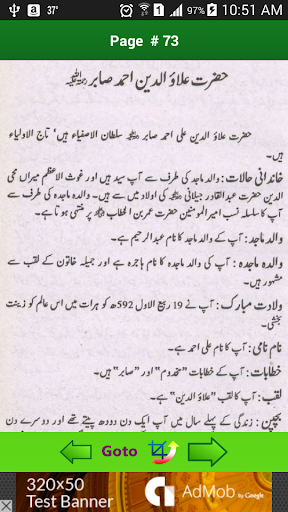 37° 10:51 AM
Page # 73
حضرت علاؤ الدین احمد صابر رحمۃ اللہ علیہ
حضرت علاؤ الدین علی احمد صابر سلطان الاصفیاء ہیں، تاج الاولیاء
ہیں۔
خاندانی حالات: والد ماجد کی طرف سے آپ سید ہیں اور غوث الاعظم میراں محی
الدین حضرت عبدالقادر جیلانی کی اولاد میں سے ہیں۔ والدہ ماجدہ کی طرف سے
آپ کا سلسلہ نسب امیر المومنین حضرت عمر بن الخطاب پر منتہی ہوتا ہے۔
والد ماجد: آپ کے والد ماجد کا نام عبدالرحیم ہے۔
والدہ ماجدہ: آپ کی والدہ ماجدہ کا نام ہاجرہ ہے اور جمیلہ خاتون کے لقب سے
مشہور ہیں۔
ولادت مبارک: آپ نے 19 ربیع الاول 592ھ کو ہرات میں اس عالم کو زینت
بخشی۔
نام نامی: آپ کا نام علی احمد ہے۔
خطابات: آپ کے خطابات "مخدوم" اور "صابر" ہیں۔
لقب: آپ کا لقب "علاؤ الدین" ہے۔
بچپن: زندگی کے پہلے سال میں آپ ایک دن دودھ پیتے تھے اور دوسرے دن
Goto
320×50
Test Banner
AdMob by Google